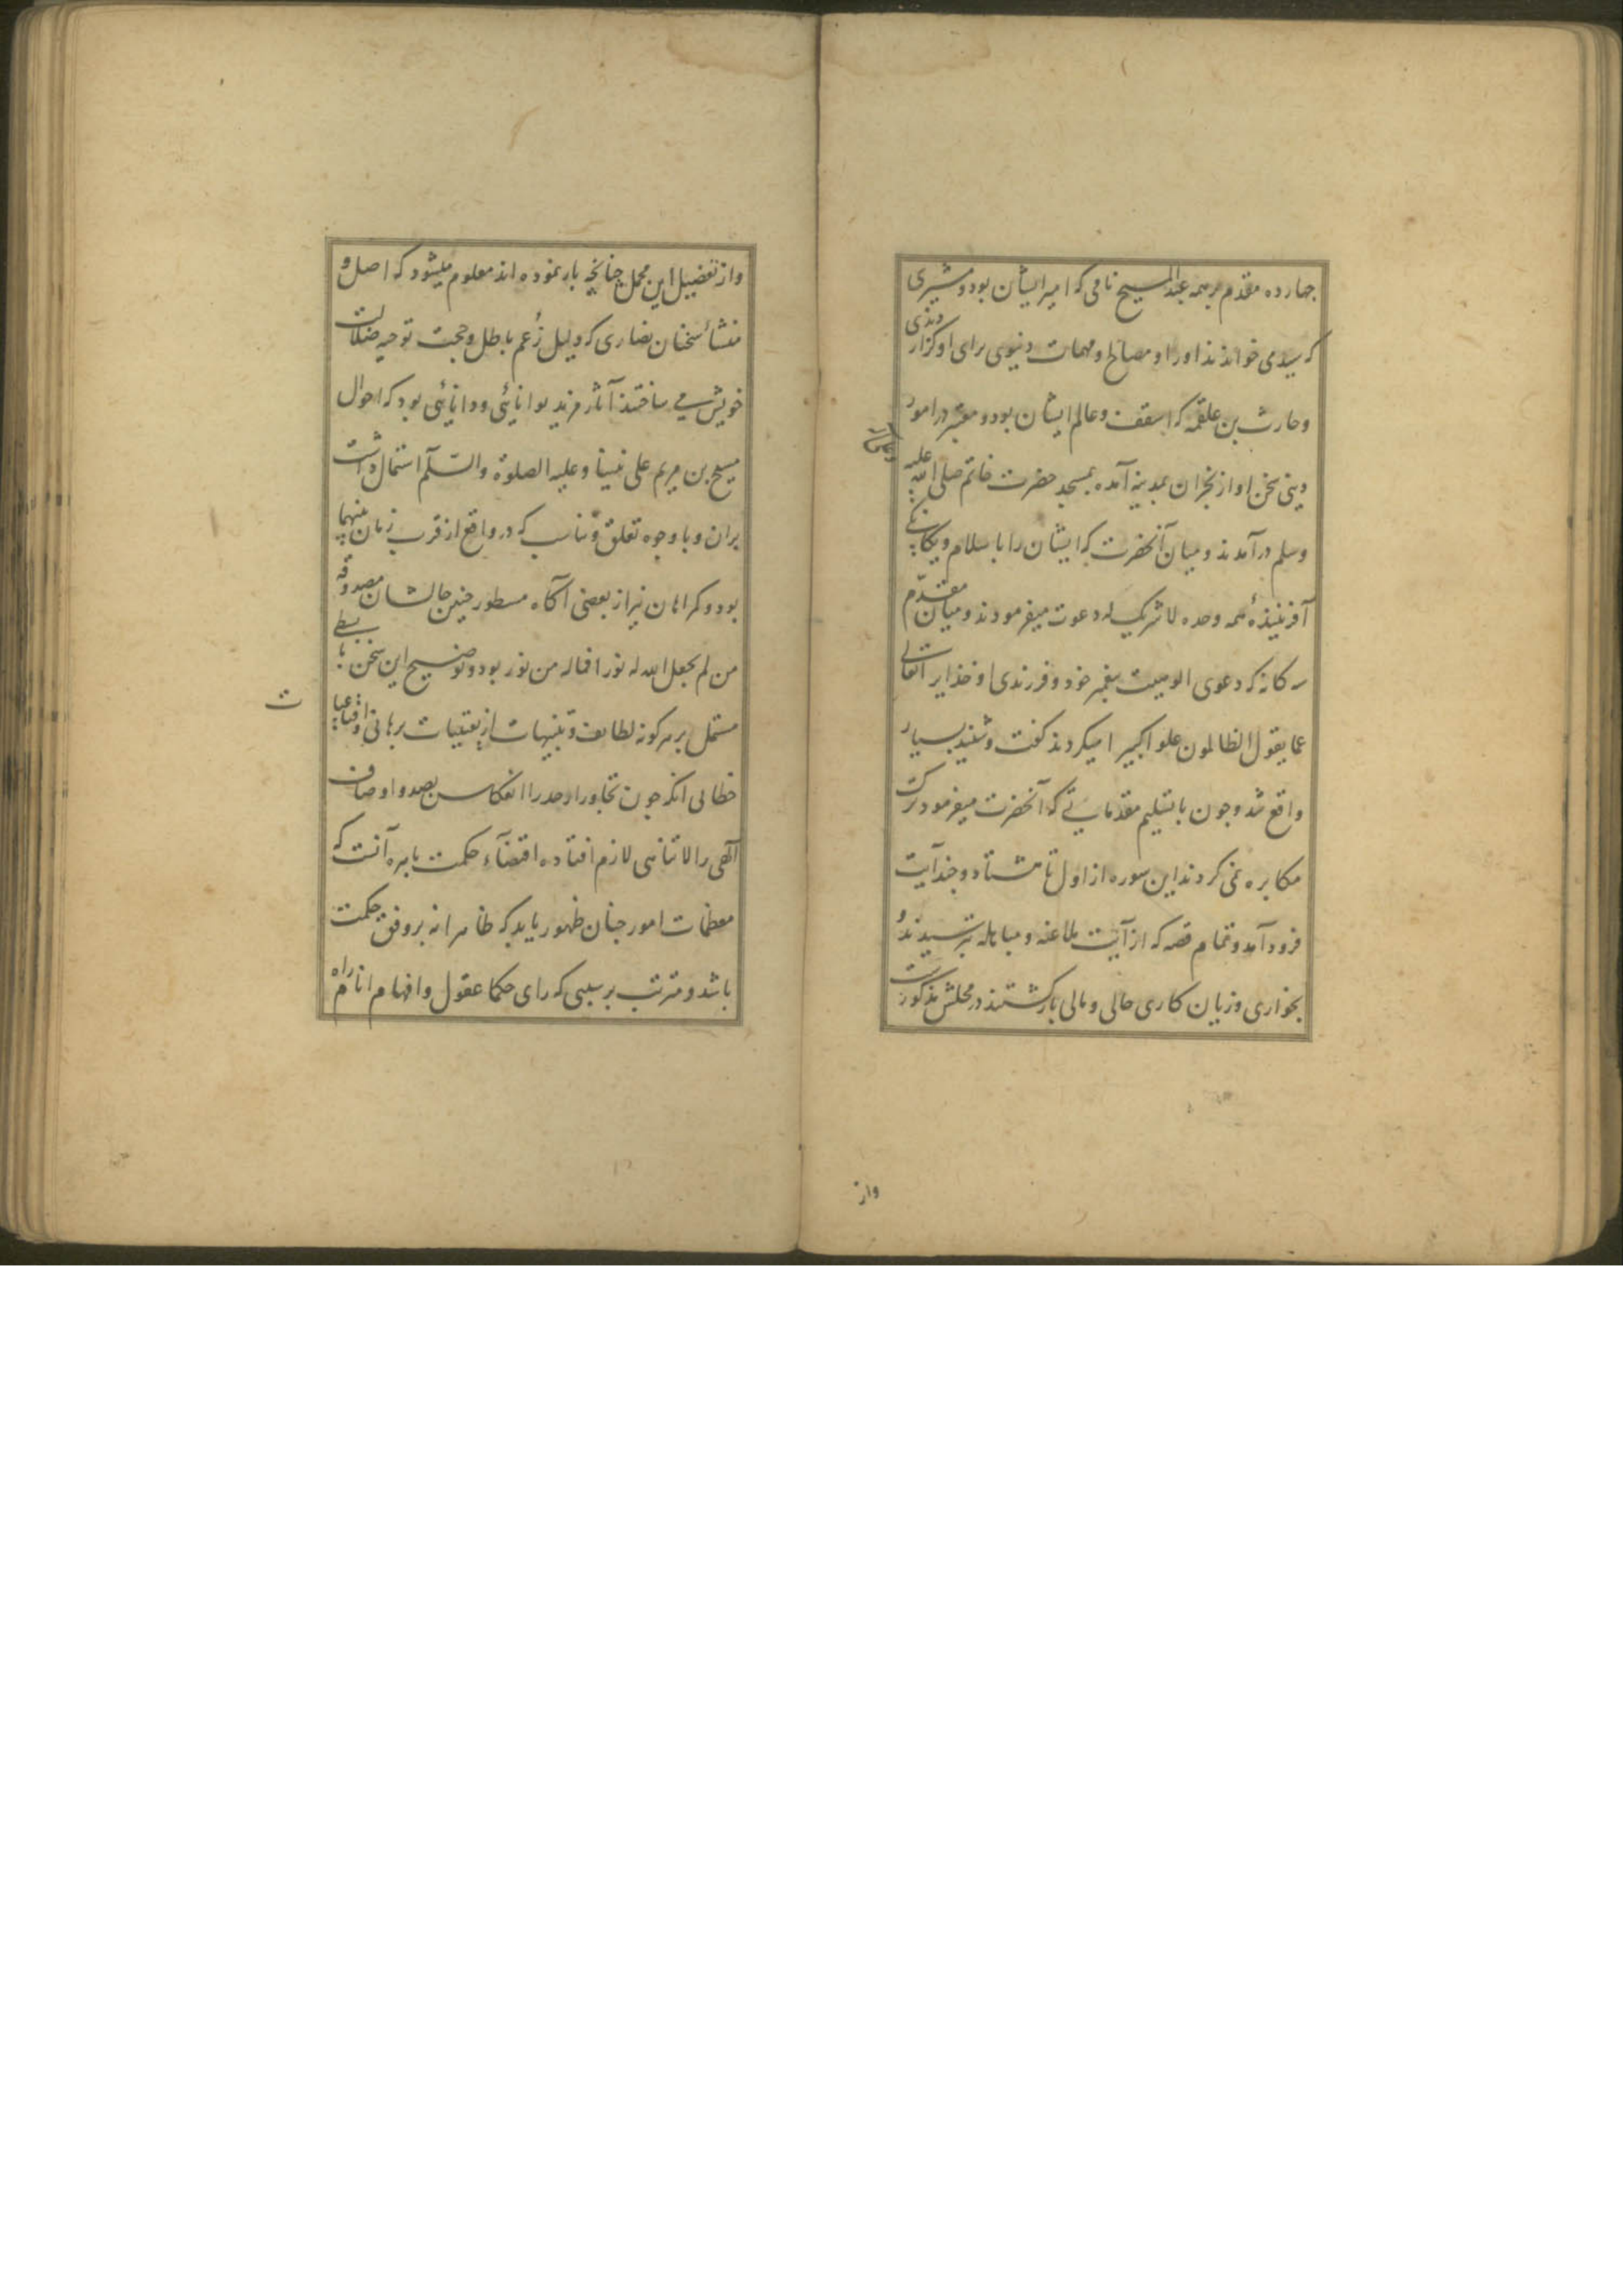 چهارده مقدم بر همه عبد المسیح نامی که امیر ایشان بود و مشیری
که سیدمی خواندند او را و مصالح و مهمات دنیوی برای او گزاردندی
و حارث بن علقمه که اسقف و عالم ایشان بود و معتبر در امور
دینی سخن او از نجران بمدینه آمده بمسجد حضرت خاتم صلی الله علیه
وسلم درآمدند و میان آنحضرت که ایشان را باسلام و یکانکی
آفریننده همه وحده لا شریک له دعوت میفرمودند و میان مقدم
سه کانه که دعوی الوهیت پیغمبر خود و فرزندی او خدایرا تعالی
عما یقول الظالمون علوا کبیرا میکردند کفت و شنید بسیار
واقع شد و چون با تسلیم مقدماتی که آنحضرت میفرمود ترک
مکابره نمی کردند این سوره از اول تا هشتاد و چند آیت
فرود آمد و تمام قصه که از آیت ملاعنه و مباهله بترسیدند و
بخواری و زیان کاری حالی و مالی بازکشتند در محلش مذکورست
واز
و از تفصیل این مجمل چنانچه باز نموده اند معلوم میشود که اصل و
منشأ سخنان نصاری که دلیل زُعم باطل و حجت توجیه ضلالت
خویش می ساختند آثار مزید توانائی و دانائی بود که احوال
مسیح بن مریم علی نبینا و علیه الصلوة والسّلم اشتمال داشت
بران و با وجوه تعلق و تناسب که در واقع از قرب زمان بینهما
بود و کمراهان نیز از بعضی آکاه مسطور چنین حالشان مصدوقه
من لم یجعل الله له نورا فماله من نور بود و توضیح این سخن ببسطی
مشتمل بر هر کونه لطایف و تنبیهات از یقینیات برهانی و اقناعیات
خطابی انکه چون تجاوز از حد را انعکاس بضد و اوصاف
آلهی را لاتناهی لازم افتاده اقتضاء حکمت باهره آنست که
معظمات امور چنان ظهور یابد که ظاهرا نه بر وفق حکمت
باشد و مترتب بر سببی که رای حکما عقول و افهام انام راه